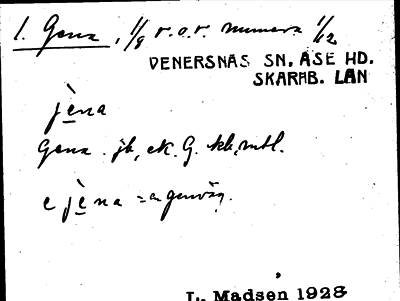 1. Gena, 1/8 r.o.r. numera 1/12
VENERSNÄS SN. ÅSE HD.
SKARAB. LÄN
jèna
Gena . jb, ek. G. kb, mtl.
e jèna = a genväg.
L. Madsen 1928